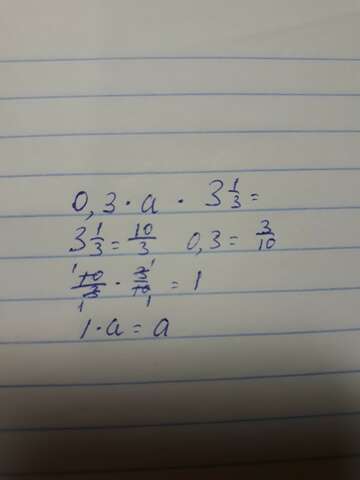 0,3 · a · 3 1/3 =
3 1/3 = 10/3 0,3 = 3/10
10/3 · 3/10 = 1
1 · a = a